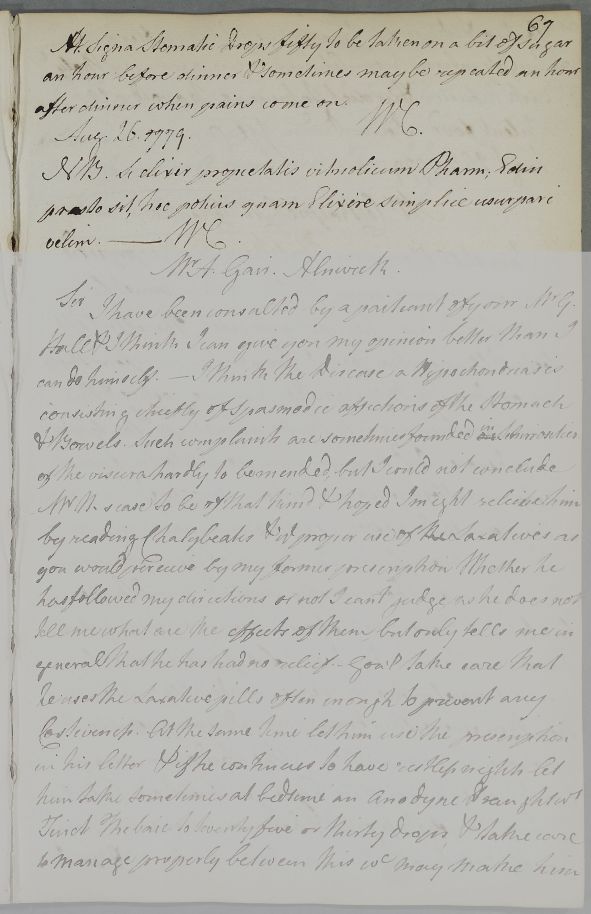 67
At. Signa Stomatic Drops fifty to be taken on a bit of sugar
an hour before dinner & sometimes may be repeated an hour
after dinner when pains come on.
Aug. 26. 1779. WC.
NB. Si elixir proprietatis vitriolicum Pharm. Edin
praesto sit, hoc potius quam Elixire simplici usurpari
velim. — WC.
Mr A. Gair. Alnwick.
Sir
I have been consulted by a patient of your Mr G.
Hall & I think I can give you my opinion better than I
can do himself. — I think the Disease a Hypochondriasis
consisting chiefly of Spasmodic affections of the Stomach
& Bowels. Such complaints are sometimes founded in
of the viscera hardly to be mended, but I could not conclude
Mr H.s case to be of that kind & hoped I might relieve him
by Chalybeates & a proper use of the Laxatives as
you would perceive by my former prescription Whether he
has followed my directions or not I cant judge as he does not
tell me what are the effects of them but only tells me in
general that he has had no relief. take care that
he uses the Laxative pills often enough to prevent any
Costiveness. At the same time let him use the prescription
in his letter & if he continues to have restless nights let
him take sometimes at bedtime an anodyne Draught wt
Tinct Thebaic to twenty five or thirty drops, & take care
to manage properly between this wc may make him